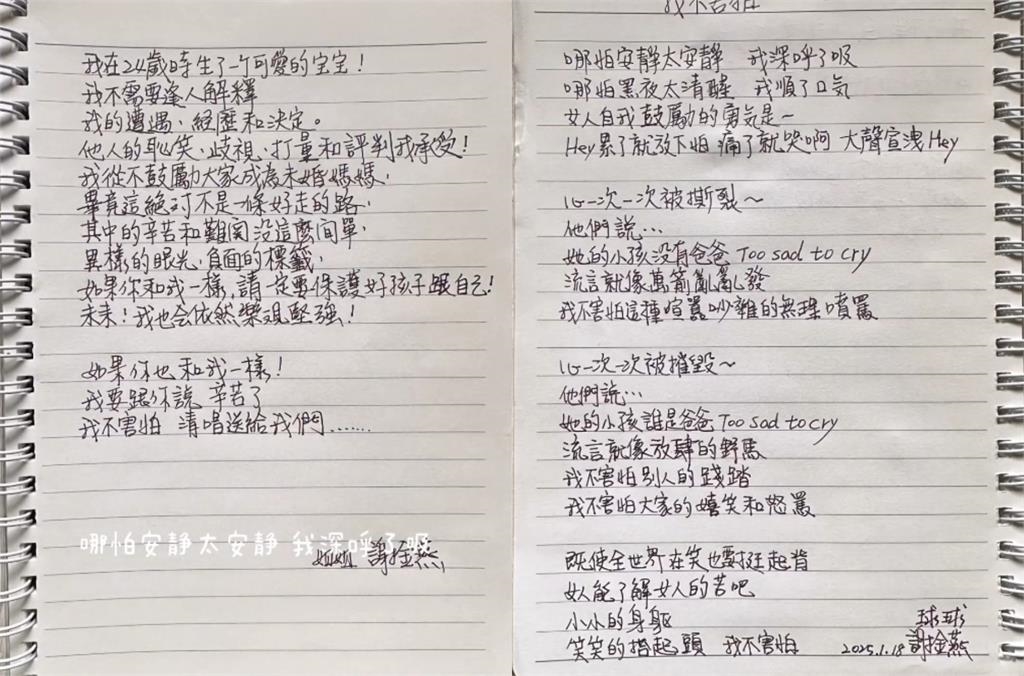 我在24歲時生了一个可愛的宝宝！
我不需要逢人解釋
我的遭遇、經歷和決定。
他人的恥笑、歧視、打量和評判我承受！
我從不鼓勵大家成為未婚媽媽，
畢竟這絕对不是一條好走的路，
其中的辛苦和難関没這麼间單，
異樣的眼光，負面的標籤，
如果你和我一樣，請一定要保護好孩子跟自己！
未来！我也会依然樂观堅強！
如果你也和我一樣！
我要跟你說 辛苦了
我不害怕 清唱送給我們.......
哪怕安静太安静 我深呼了吸
姐姐 謝金燕
我不害怕
哪怕安静太安静 我深呼了吸
哪怕黑夜太清醒 我順了口気
女人自我鼓勵的勇気是～
Hey累了就放下怕 痛了就哭啊 大聲宣洩Hey
心一次一次被撕裂～
他們說…
她的小孩没有爸爸 Too sad to cry
流言就像萬箭亂亂發
我不害怕這種喧囂吵雜的無理噴罵
心一次一次被摧毀～
他們說…
她的小孩誰是爸爸 Too sad to cry
流言就像放肆的野馬
我不害怕别人的踐踏
我不害怕大家的嬉笑和怒罵
既使全世界在笑也要挺起背
女人能了解女人的苦吧
小小的身軀
笑笑的抬起頭 我不害怕
球球
2025.1.18 謝金燕